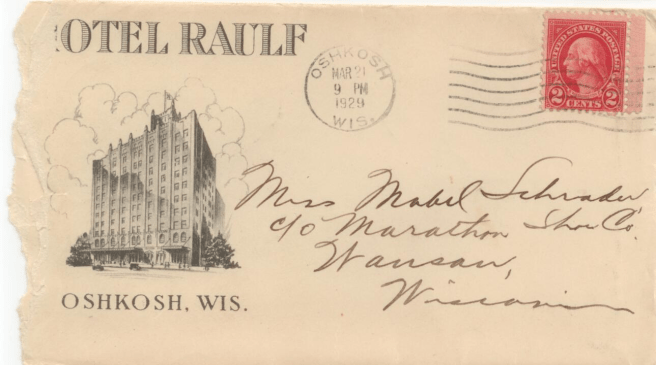 OTEL RAULF
OSHKOSH
MAR 21
9 PM
1929
WIS.
UNITED STATES POSTAGE
2 CENTS 2
Miss Mabel Schrader
c/o Marathon Shoe Co.
Wausau,
Wisconsin
OSHKOSH, WIS.